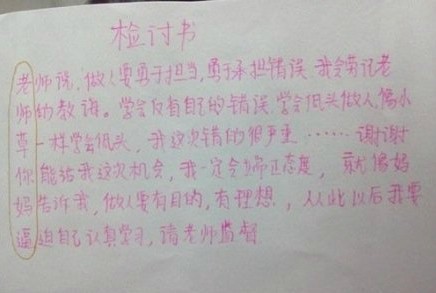 检讨书
老师说，做人要勇于担当，勇于承担错误 我会劳记老
师的教诲。学会反省自己的错误 学会低头做人，像小
草一样学会低头，我这次错的很严重……谢谢
你能给我这次机会，我一定会端正态度，就像妈
妈告诉我，做人要有目的，有理想，从此以后我要
逼迫自己认真学习，请老师监督